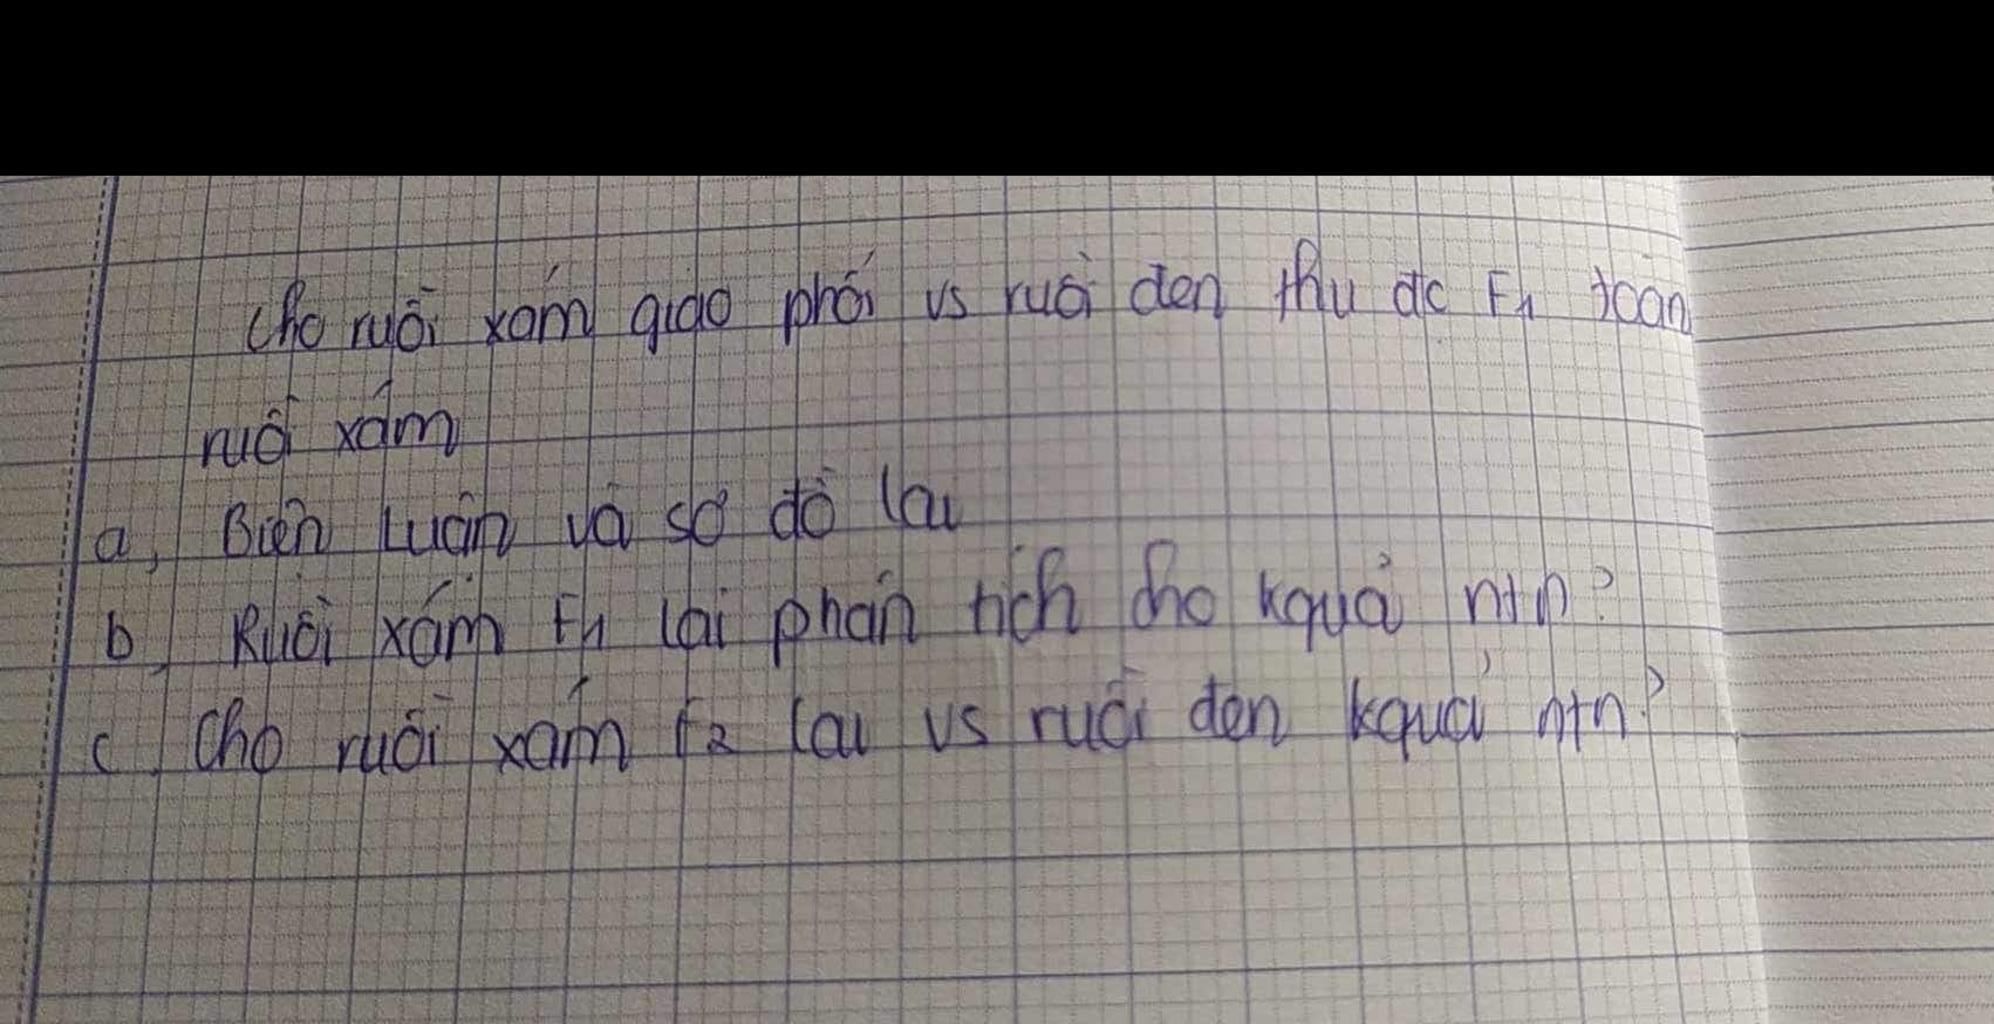 Cho ruồi xám giao phối vs ruồi đen thu đc F1 toàn
ruồi xám
a, Biện luận và sơ đồ lai
b, Ruồi xám F1 lai phân tích cho kquả ntn?
c, Cho ruồi xám F2 lai vs ruồi đen kquả ntn?